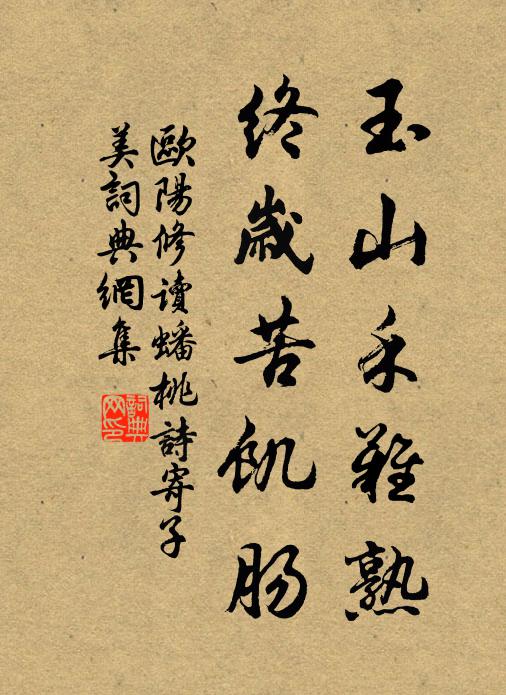 玉山禾難熟
終歲苦飢肠
歐陽修讀蟠桃詩寄子
美詞典網集
詞典
网印